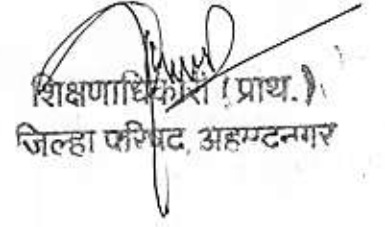 शिक्षणाधिकारी (प्राथ.)
जिल्हा परिषद, अहमदनगर